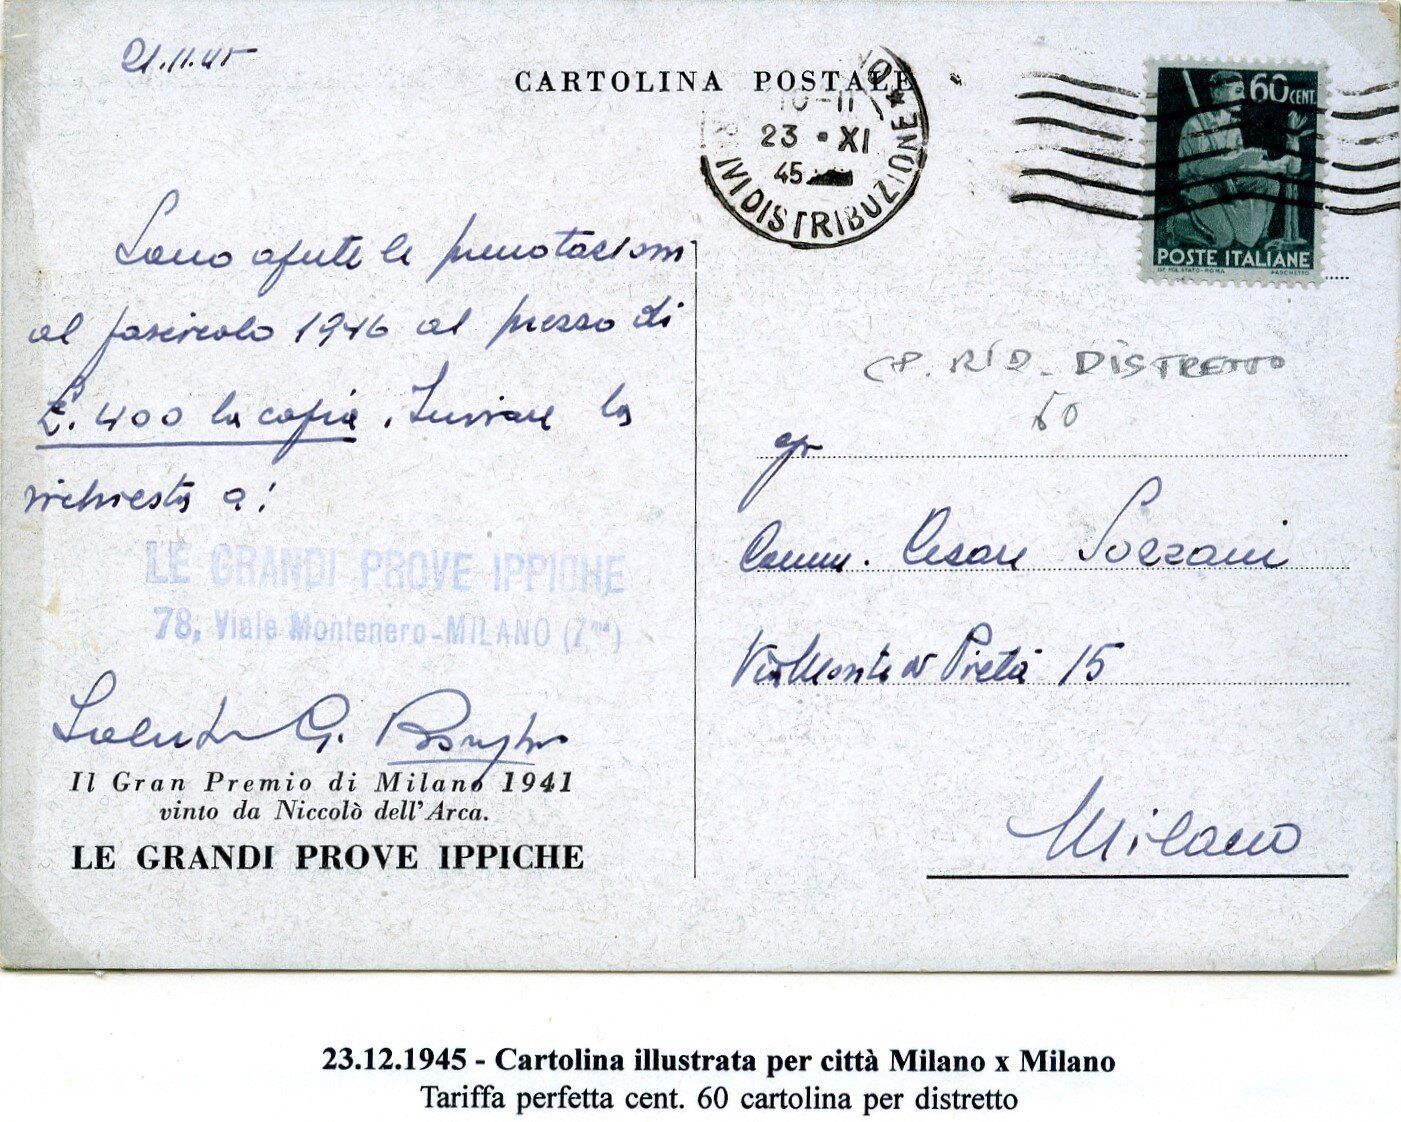 21.11.45
CARTOLINA POSTALE
10-11
23 • XI
45
R. IVI DISTRIBUZIONE *
60 CENT.
POSTE ITALIANE
IST. POL. STATO - ROMA
Sono aperte le prenotazioni
al fascicolo 1946 al prezzo di
£. 400 la copia. Inviare la
richiesta a:
LE GRANDI PROVE IPPICHE
78, Viale Montenero - MILANO (7
G.
Il Gran Premio di Milano 1941
vinto da Niccolò dell'Arca.
LE GRANDI PROVE IPPICHE
CP. RID. DISTRETTO
60
Comm. Cesare Sozzani
Via Monte di Pietà 15
Milano
23.12.1945 - Cartolina illustrata per città Milano x Milano
Tariffa perfetta cent. 60 cartolina per distretto